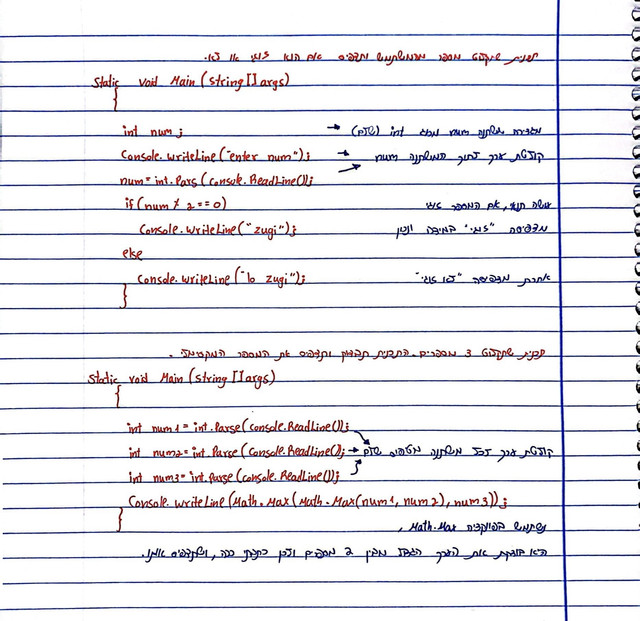 תכנית שקולטת מספר מהמשתמש ותדפיס אם הוא זוגי או לא.
Static void Main (string[] args)
{
int num; → מגדירה משתנה num מסוג int (שלם)
Console.writeLine("enter num"); → קולטת ערך לתוך המשתנה num
num = int.Pars (console.ReadLine());
if (num % 2 == 0) עושה תנאי, אם המספר זוגי
Console.writeLine("zugi"); מדפיסה "זוגי" במידה וכן
else
Console.writeLine("lo zugi"); אחרת מדפיסה "לא זוגי"
}
תכנית שתקלוט 3 מספרים. התכנית תבדוק ותדפיס את המספר המקסימלי.
Static void Main (string[] args)
{
int num1 = int.Parse (console.ReadLine());
int num2 = int.Parse (Console.ReadLine(); → קולטת ערך לכל משתנה מטיפוס שלם
int num3 = int.Parse (console.ReadLine());
Console.writeLine(Math.Max(Math.Max(num1, num2), num3));
} נשתמש בפונקציה Math.Max,
היא בודקת את הערך הגדול מבין 2 מספרים ולכן כתבתי ככה, ושתדפיס אותו.